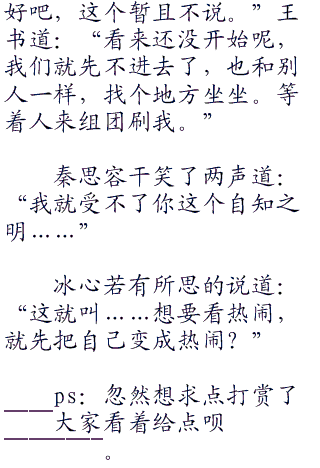 好吧，这个暂且不说。”王
书道：“看来还没开始呢，
我们就先不进去了，也和别
人一样，找个地方坐坐。等
着人来组团刷我。”
秦思容干笑了两声道：
“我就受不了你这个自知之
明……”
冰心若有所思的说道：
“这就叫……想要看热闹，
就先把自己变成热闹？”
__ps：忽然想求点打赏了
大家看着给点呗
____。